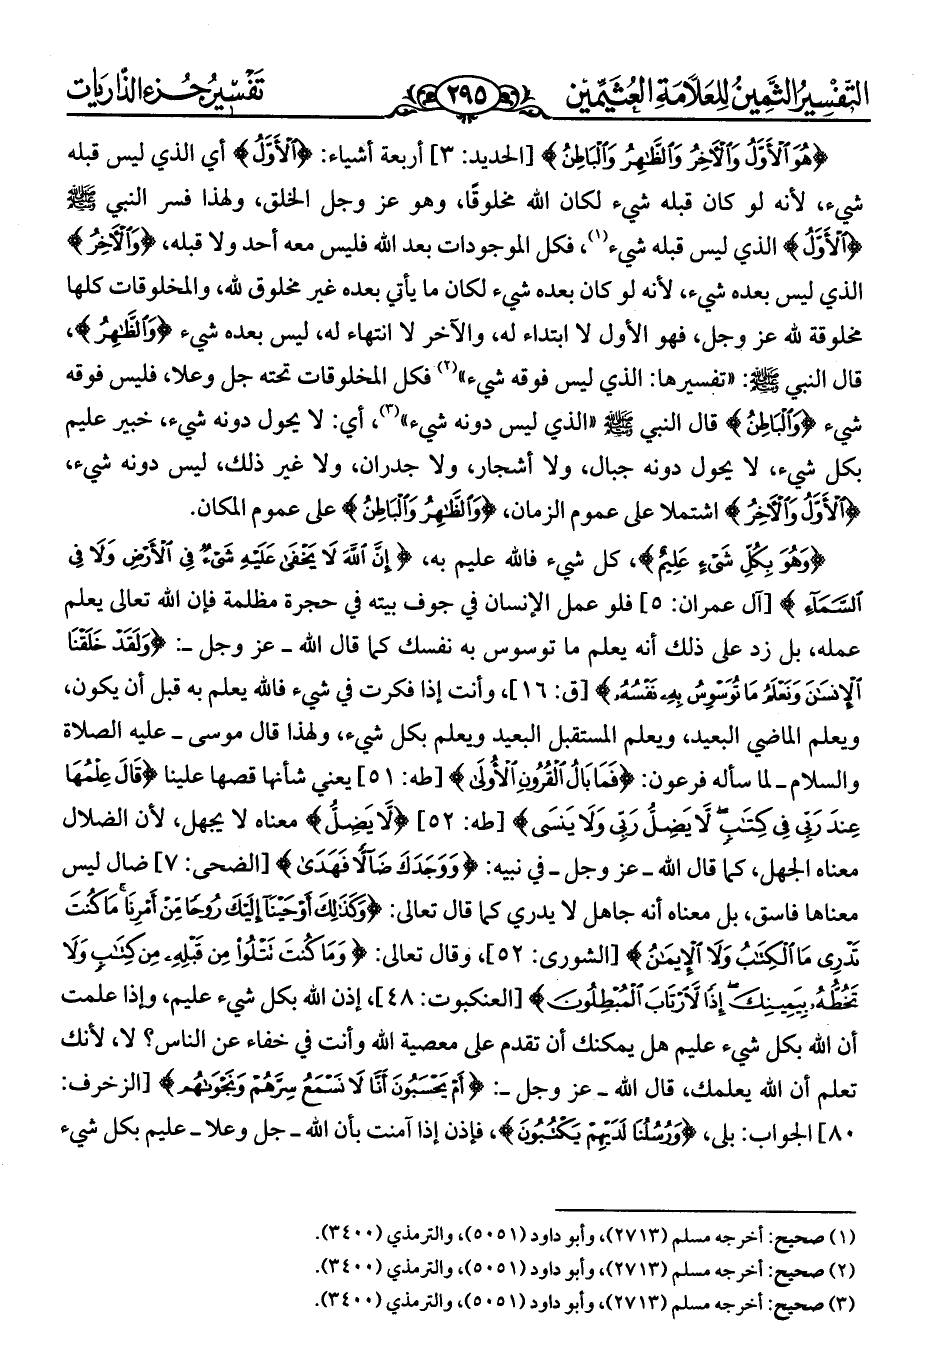 التفسير الثمين للعلامة العثيمين ٢٩٥ تفسير جزء الذاريات
﴿هُوَ ٱلْأَوَّلُ وَٱلْآخِرُ وَٱلظَّاهِرُ وَٱلْبَاطِنُ﴾ [الحديد: ٣] أربعة أشياء: ﴿ٱلْأَوَّلُ﴾ أي الذي ليس قبله
شيء، لأنه لو كان قبله شيء لكان الله مخلوقًا، وهو عز وجل الخلق، ولهذا فسر النبي ﷺ
﴿ٱلْأَوَّلُ﴾ الذي ليس قبله شيء(١)، فكل الموجودات بعد الله فليس معه أحد ولا قبله، ﴿وَٱلْآخِرُ﴾
الذي ليس بعده شيء، لأنه لو كان بعده شيء لكان ما يأتي بعده غير مخلوق لله، والمخلوقات كلها
مخلوقة لله عز وجل، فهو الأول لا ابتداء له، والآخر لا انتهاء له، ليس بعده شيء ﴿وَٱلظَّٰهِرُ﴾،
قال النبي ﷺ: «تفسيرها: الذي ليس فوقه شيء»(٢) فكل المخلوقات تحته جل وعلا، فليس فوقه
شيء ﴿وَٱلْبَاطِنُ﴾ قال النبي ﷺ «الذي ليس دونه شيء»(٣)، أي: لا يحول دونه شيء، خبير عليم
بكل شيء، لا يحول دونه جبال، ولا أشجار، ولا جدران، ولا غير ذلك، ليس دونه شيء،
﴿ٱلْأَوَّلُ وَٱلْآخِرُ﴾ اشتملا على عموم الزمان، ﴿وَٱلظَّٰهِرُ وَٱلْبَاطِنُ﴾ على عموم المكان.
﴿وَهُوَ بِكُلِّ شَىْءٍ عَلِيمٌ﴾، كل شيء فالله عليم به، ﴿إِنَّ ٱللَّهَ لَا يَخْفَىٰ عَلَيْهِ شَىْءٌ فِى ٱلْأَرْضِ وَلَا فِى
ٱلسَّمَآءِ﴾ [آل عمران: ٥] فلو عمل الإنسان في جوف بيته في حجرة مظلمة فإن الله تعالى يعلم
عمله، بل زد على ذلك أنه يعلم ما توسوس به نفسك كما قال الله ـ عز وجل ـ: ﴿وَلَقَدْ خَلَقْنَا
ٱلْإِنسَٰنَ وَنَعْلَمُ مَا تُوَسْوِسُ بِهِۦ نَفْسُهُۥ﴾ [ق: ١٦]، وأنت إذا فكرت في شيء فالله يعلم به قبل أن يكون،
ويعلم الماضي البعيد، ويعلم المستقبل البعيد ويعلم بكل شيء، ولهذا قال موسى ـ عليه الصلاة
والسلام ـ لما سأله فرعون: ﴿فَمَا بَالُ ٱلْقُرُونِ ٱلْأُولَىٰ﴾ [طه: ٥١] يعني شأنها قصها علينا ﴿قَالَ عِلْمُهَا
عِندَ رَبِّى فِى كِتَٰبٍ ۖ لَّا يَضِلُّ رَبِّى وَلَا يَنسَى﴾ [طه: ٥٢] ﴿لَّا يَضِلُّ﴾ معناه لا يجهل، لأن الضلال
معناه الجهل، كما قال الله ـ عز وجل ـ في نبيه: ﴿وَوَجَدَكَ ضَآلًّا فَهَدَىٰ﴾ [الضحى: ٧] ضال ليس
معناها فاسق، بل معناه أنه جاهل لا يدري كما قال تعالى: ﴿وَكَذَٰلِكَ أَوْحَيْنَآ إِلَيْكَ رُوحًا مِّنْ أَمْرِنَا ۚ مَا كُنتَ
تَدْرِى مَا ٱلْكِتَٰبُ وَلَا ٱلْإِيمَٰنُ﴾ [الشورى: ٥٢]، وقال تعالى: ﴿وَمَا كُنتَ تَتْلُوا۟ مِن قَبْلِهِۦ مِن كِتَٰبٍ وَلَا
تَخُطُّهُۥ بِيَمِينِكَ ۖ إِذًا لَّٱرْتَابَ ٱلْمُبْطِلُونَ﴾ [العنكبوت: ٤٨]، إذن الله بكل شيء عليم، وإذا علمت
أن الله بكل شيء عليم هل يمكنك أن تقدم على معصية الله وأنت في خفاء عن الناس؟ لا، لأنك
تعلم أن الله يعلمك، قال الله ـ عز وجل ـ: ﴿أَمْ يَحْسَبُونَ أَنَّا لَا نَسْمَعُ سِرَّهُمْ وَنَجْوَىٰهُم﴾ [الزخرف:
٨٠] الجواب: بلى، ﴿وَرُسُلُنَا لَدَيْهِمْ يَكْتُبُونَ﴾، فإذن إذا آمنت بأن الله ـ جل وعلا ـ عليم بكل شيء
(١) صحيح: أخرجه مسلم (٢٧١٣)، وأبو داود (٥٠٥١)، والترمذي (٣٤٠٠).
(٢) صحيح: أخرجه مسلم (٢٧١٣)، وأبو داود (٥٠٥١)، والترمذي (٣٤٠٠).
(٣) صحيح: أخرجه مسلم (٢٧١٣)، وأبو داود (٥٠٥١)، والترمذي (٣٤٠٠).